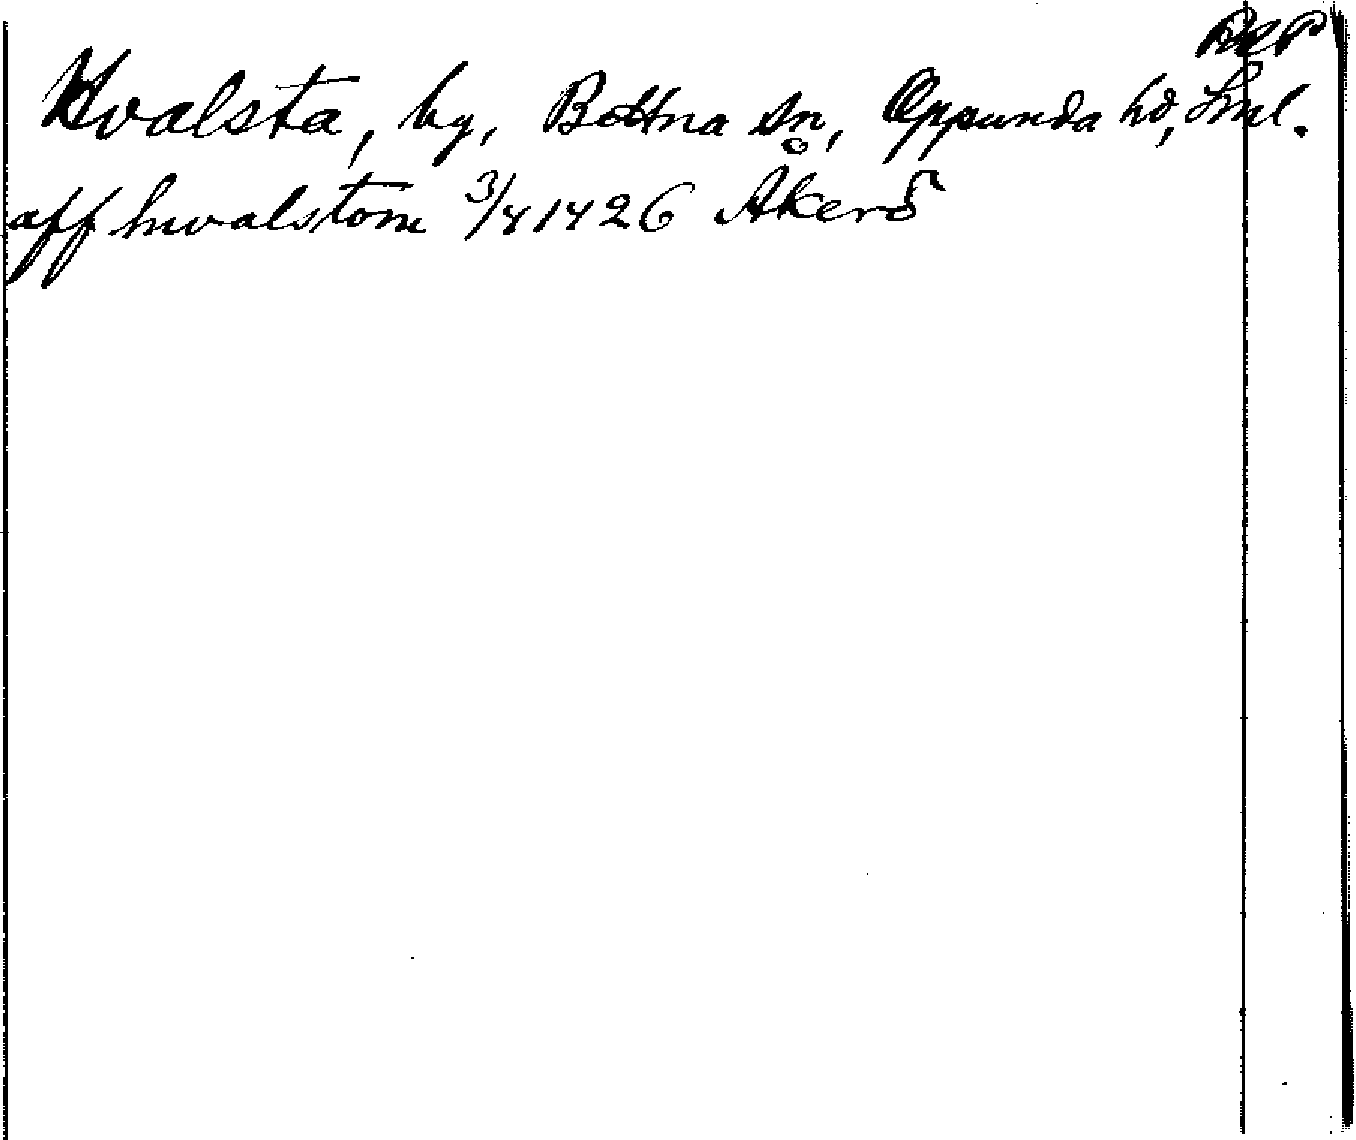 Hvalsta, by, Bettna sn, Oppunda hd, Sml.
aff hwalstom 3/4 1426 Åkerö